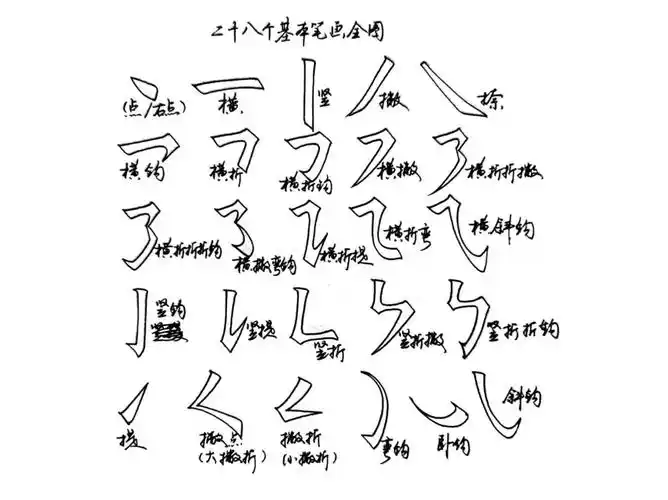 二十八个基本笔画全图
(点/右点) 横 竖 撇 捺
横钩 横折 横折钩 横撇 横折折撇
横折折折钩 横撇弯钩 横折提 横折弯 横斜钩
竖钩 竖提 竖折 竖折撇 竖折折钩
提 撇点 撇折 弯钩 卧钩 斜钩
(大撇折) (小撇折)